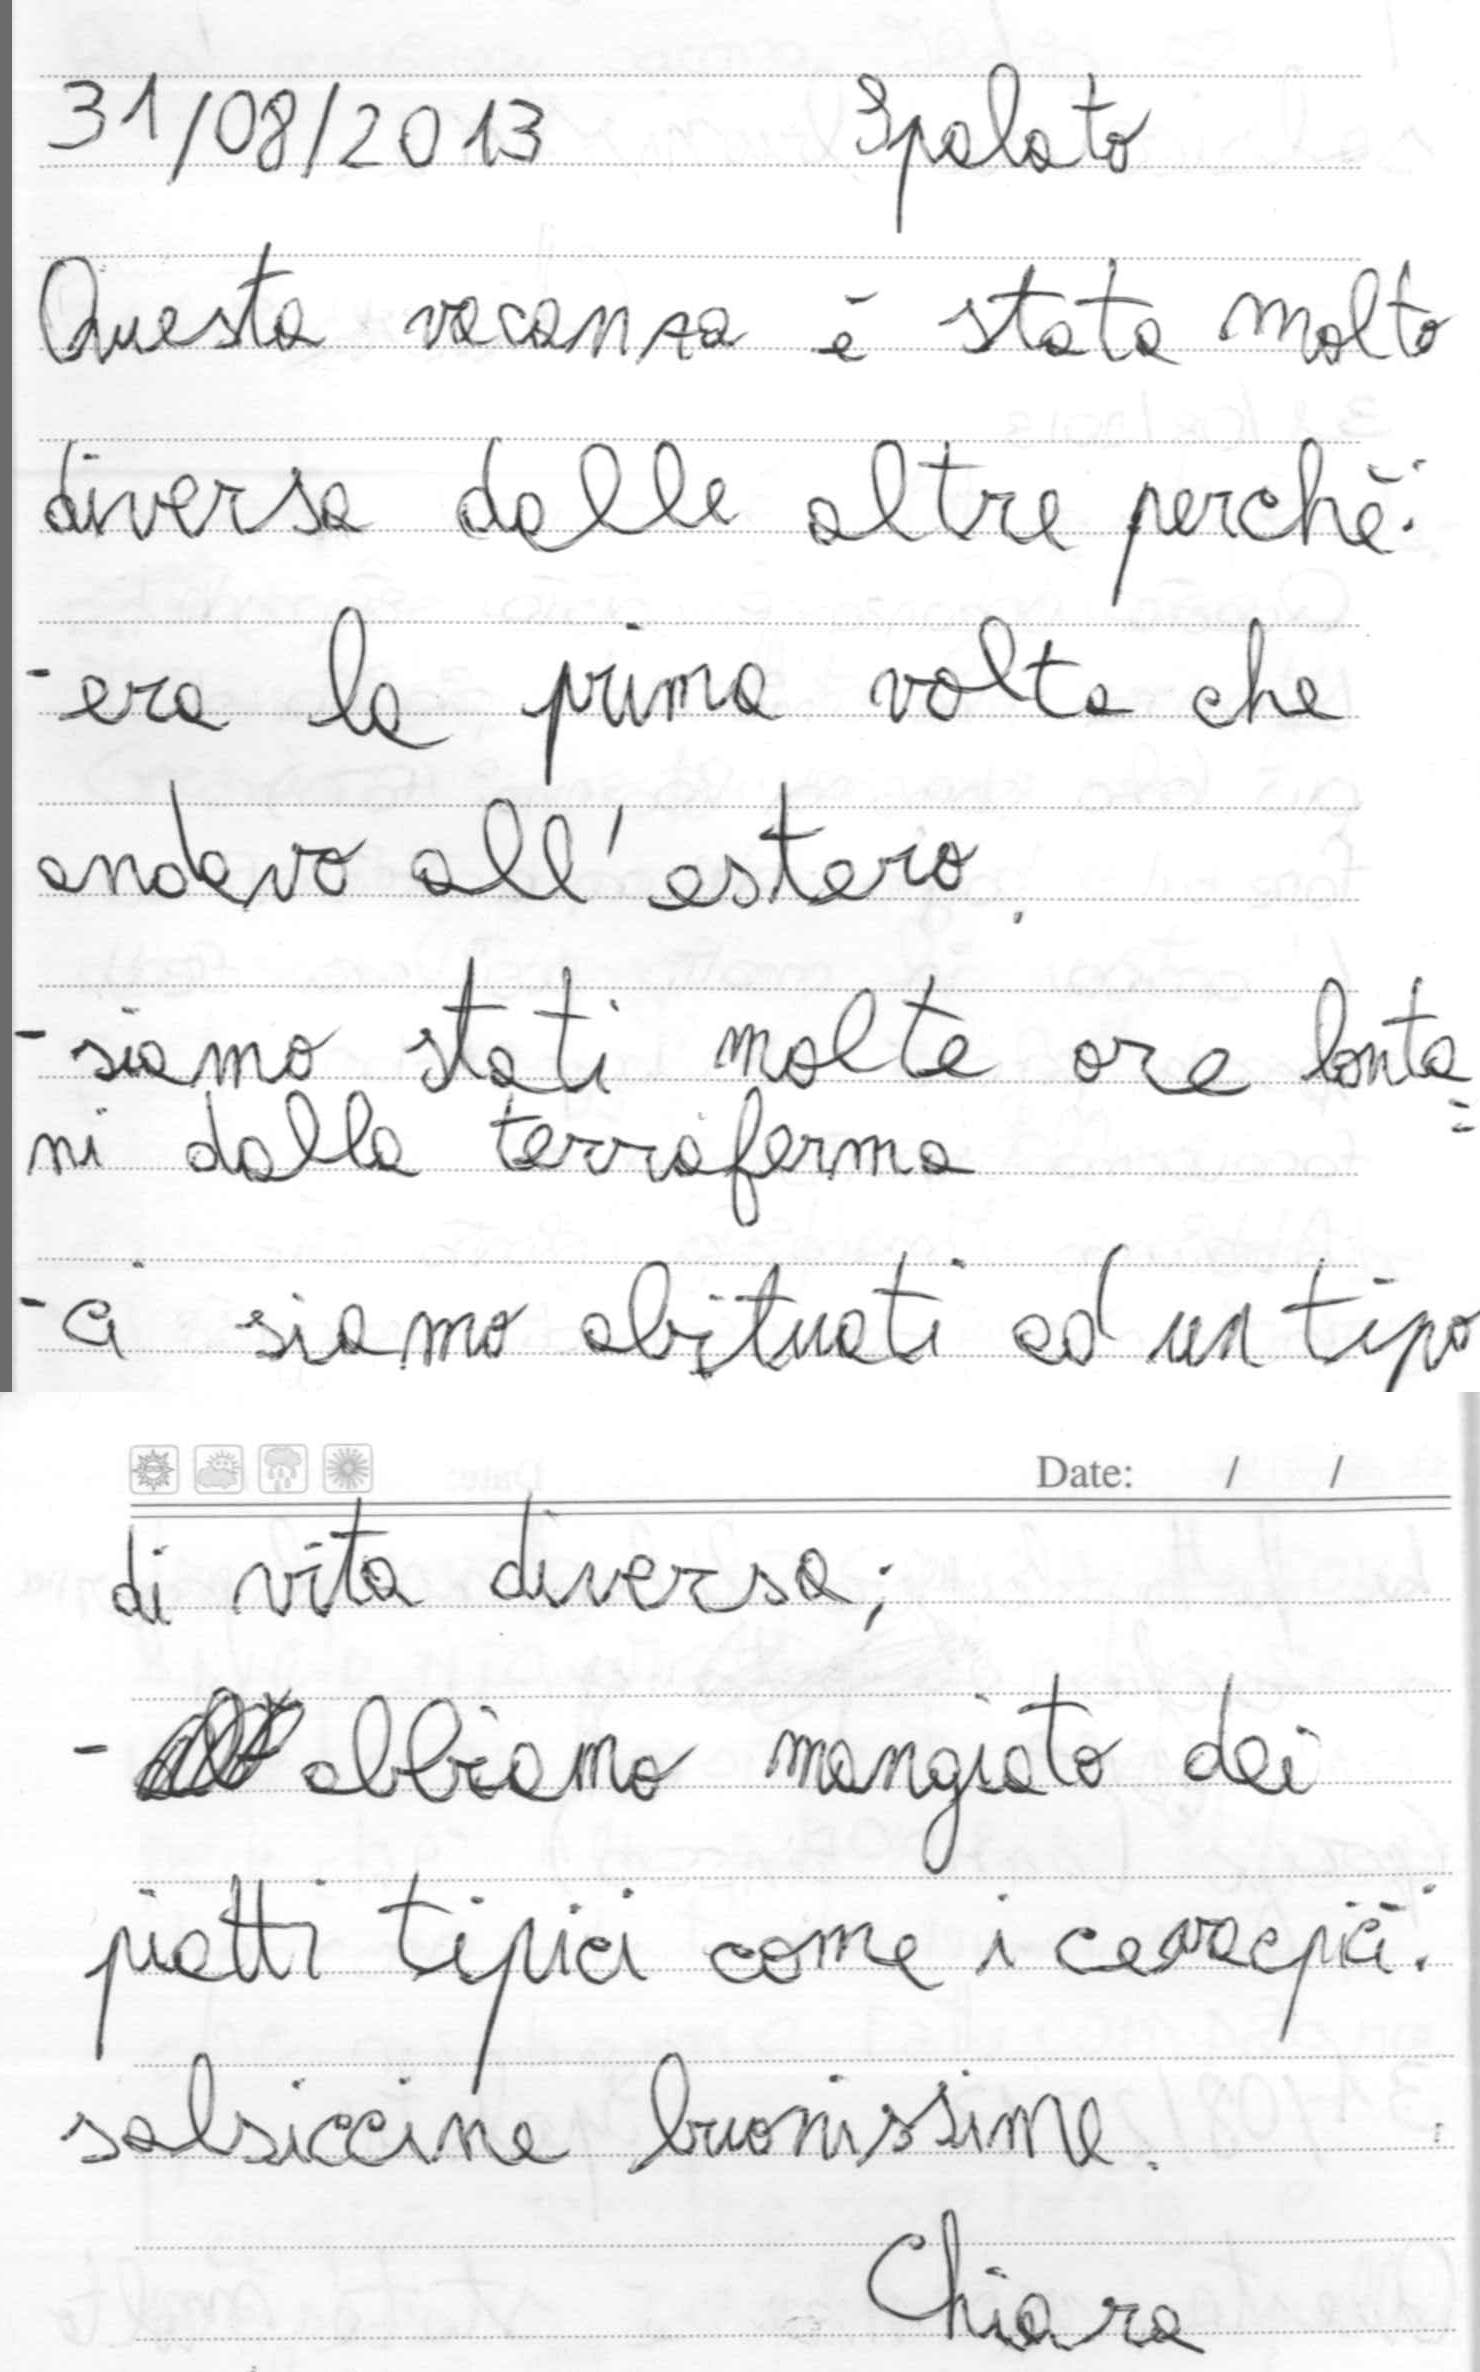 31/08/2013 Spalato
Questa vacanza è stata molto
diversa dalle altre perchè:
-era la prima volta che
andavo all'estero.
-siamo stati molte ore lonta=
ni dalla terraferma
-ci siamo abituati ad un tipo
Date: / /
di vita diversa;
- abbiamo mangiato dei
piatti tipici come i cevacpici:
salsiccine buonissime.
Chiara